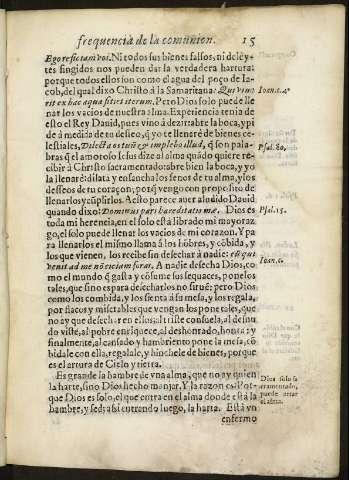 frequencia de la comunion. 15
Ego reficiam vos. Ni todos sus bienes falsos, ni deley-
tes fingidos nos pueden dar la verdadera hartura:
porque todos ellos son como el agua del poço de Ia-
cob, del qual dixo Christo à la Samaritana: Qui
rit ex hac aqua sitiet iterum. Pero Dios solo puede lle-
Ioan. 4.
nar los vacios de nuestra alma. Experiencia tenia de
esto el Rey Dauid, pues vino à dezir: abre la boca, y pi-
de à medida de tu desseo, q̃ yo te llenaré de bienes ce-
lestiales, Dilata os tuũ & implebo illud, q̃ son pala-
Psal. 80.
bras q̃ el amoroso Iesus dize al alma quãdo quiere re-
cibir à Christo sacramentado: abre bien la boca, y yo
la llenaré: dilata y ensancha los senos de tu alma, y los
desseos de tu coraçon, porq̃ vengo con proposito de
llenarlos y cũplirlos. A esto parece auer aludido Dauid
quando dixo: Dominus pars hæreditatis meæ. Dios es to
Psal. 15.
da mi herencia, en el solo está librado mi mayoraz-
go, el solo puede llenar los vacios de mi coraçon. Y pa
ra llenarlos el mismo llama à los hõbres, y cõbida, y à
los que vienen, los recibe sin desechar à nadie: eũ qui
Ioan. 6.
venit ad me nõ eiciam foras. A nadie desecha Dios, co-
mo el mundo q̃ gasta, y cõsume sus sequaces, pone los
tales, que sino espara desecharlos no siruẽ: pero Dios
como los combida, y los sienta à su mesa, y los regala,
por flacos y miserables que vengan los pone tales, que
no ay que desechar en ellos, al triste consuela, al desnu
do viste, al pobre enriquece, al deshonrado, honra: y
finalmente, al cansado y hambriento pone la mesa, cõ
bidale con ella, regalale, y hinchele de bienes, porque
es el artura de Cielo y tierra.
Es grande la hambre de vna alma, que no ay quien
Dios solo sa
la harte, sino Dios hecho manjar. Y la razon es: Por-
cramentado,
que Dios es solo, el que entra en el alma donde està la
puede artar
el alma.
hambre, y sed: assi entrando luego, la harta. Està vn
enfermo